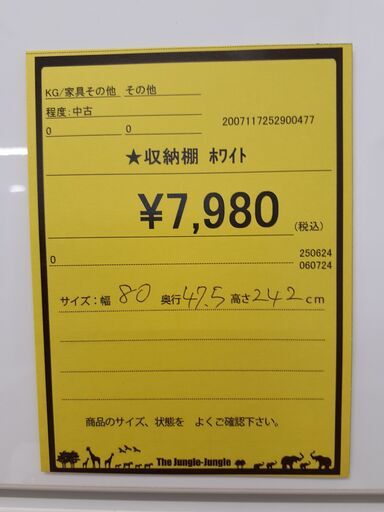 KG/家具その他 その他
程度:中古
0 0 2007117252900477
★収納棚 ホワイト
¥7,980 (税込)
0 250624
060724
サイズ:幅 80 奥行 47.5 高さ 242 cm
商品のサイズ、状態を よくご確認下さい。
The Jungle-Jungle